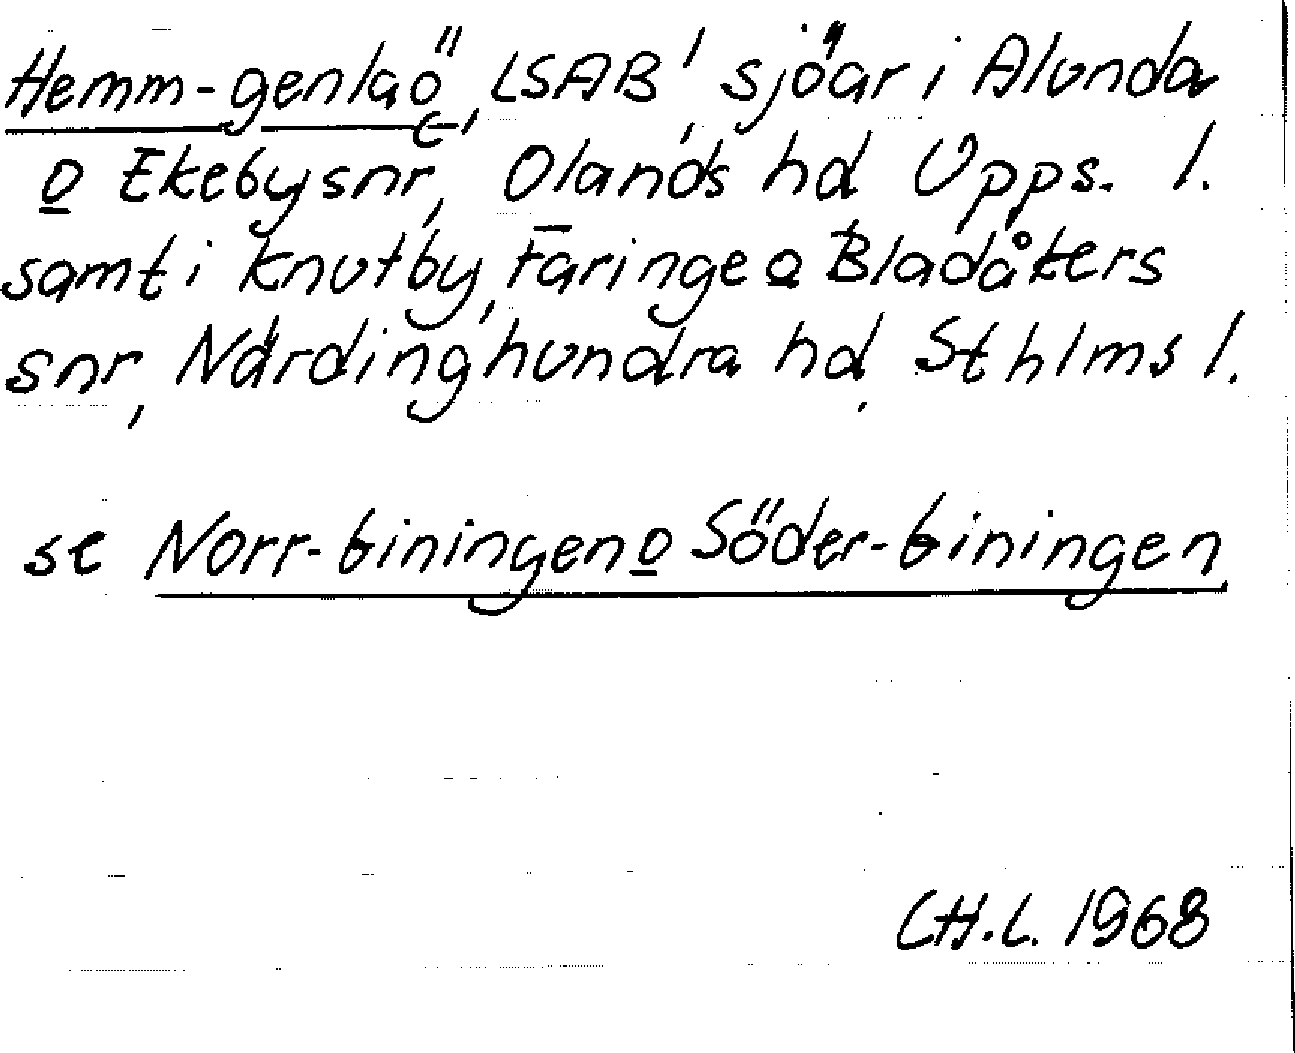 Hemm-genlaö, LSAB' sjöar i Alunda
o Ekeby snr, Olands hd Upps. l.
samt i Knutby, Faringe o Bladåkers
snr, Närdinghundra hd, Sthlms l.
se Norr-giningen o Söder-giningen
CH.L. 1968